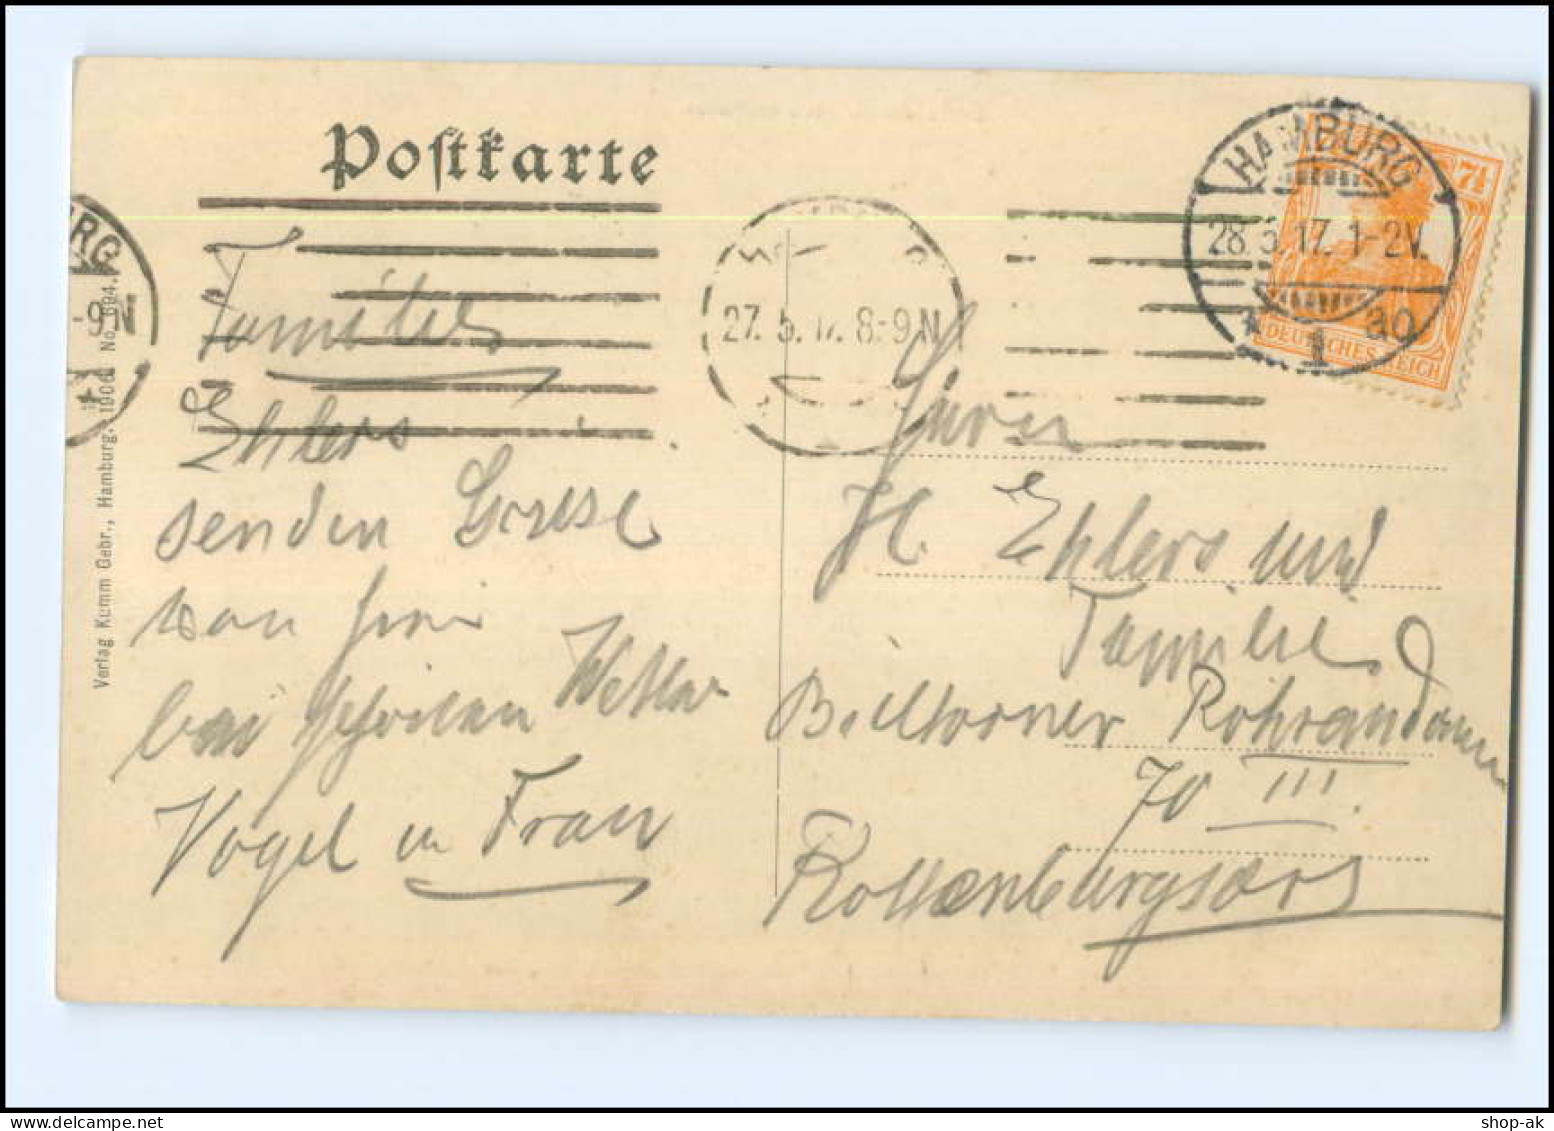 Postkarte
HAMBURG
28.5.17. 1-2N.
* 1 ao
7½
DEUTSCHES REICH
27. 5. 17. 8-9N
RG
-9N
Verlag Kumm Gebr., Hamburg, 1906. No. 694.
Familie
Ehlers
senden Grüsse
von hier
bei schönen Wetter
Vogel u Frau
Herrn
H. Ehlers und
Familie
Billhorner Röhrendamm
70 III.
Rothenburgsort
shop-ak